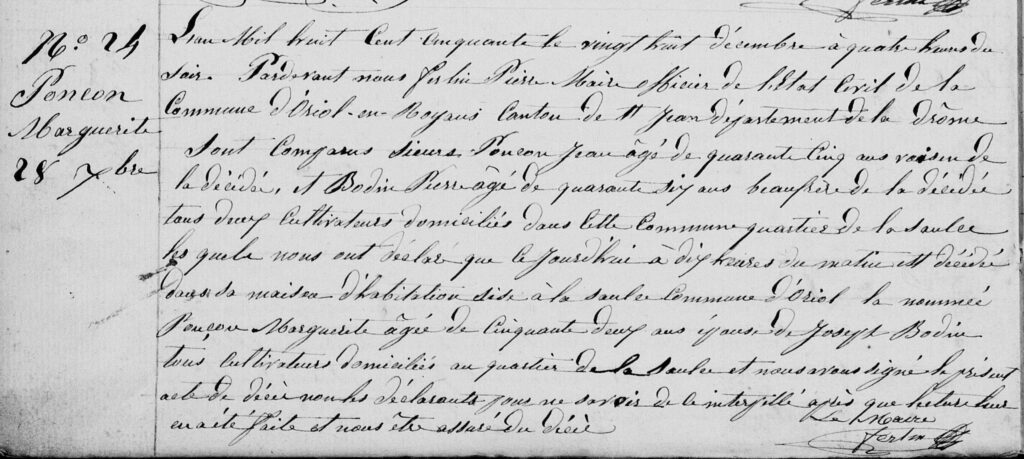 No. 24
Poncon
Marguerite
28 Xbre
L'an Mil huit Cent Cinquante le vingt huit décembre à quatre heures du
soir. Pardevant nous fertin Pierre Maire Officier de l'Etat Civil de la
Commune d'Oriol-en-Royans Canton de St Jean département de la drôme
Sont Comparus sieurs Poncon Jean âgé de quarante Cinq ans voisin de
la décédée, et Bodin Pierre âgé de quarante six ans beaufrère de la décédée
tous deux Cultivateurs domiciliés dans Cette Commune quartier de la saulee
les quels nous ont déclaré que Ce jourd'hui à dix heures du matin est décédée
dans sa maison d'habitation sise à la saulee Commune d'Oriol la nommée
Poncon Marguerite âgée de Cinquante deux ans épouse de Joseph Bodin
tous Cultivateurs domiciliés au quartier de la saulee et nous avons signé le présent
acte de décès non les déclarants pour ne savoir de ce interpillé après que lecture leur
en a été faite et nous être assuré du décès
Le Maire
fertin